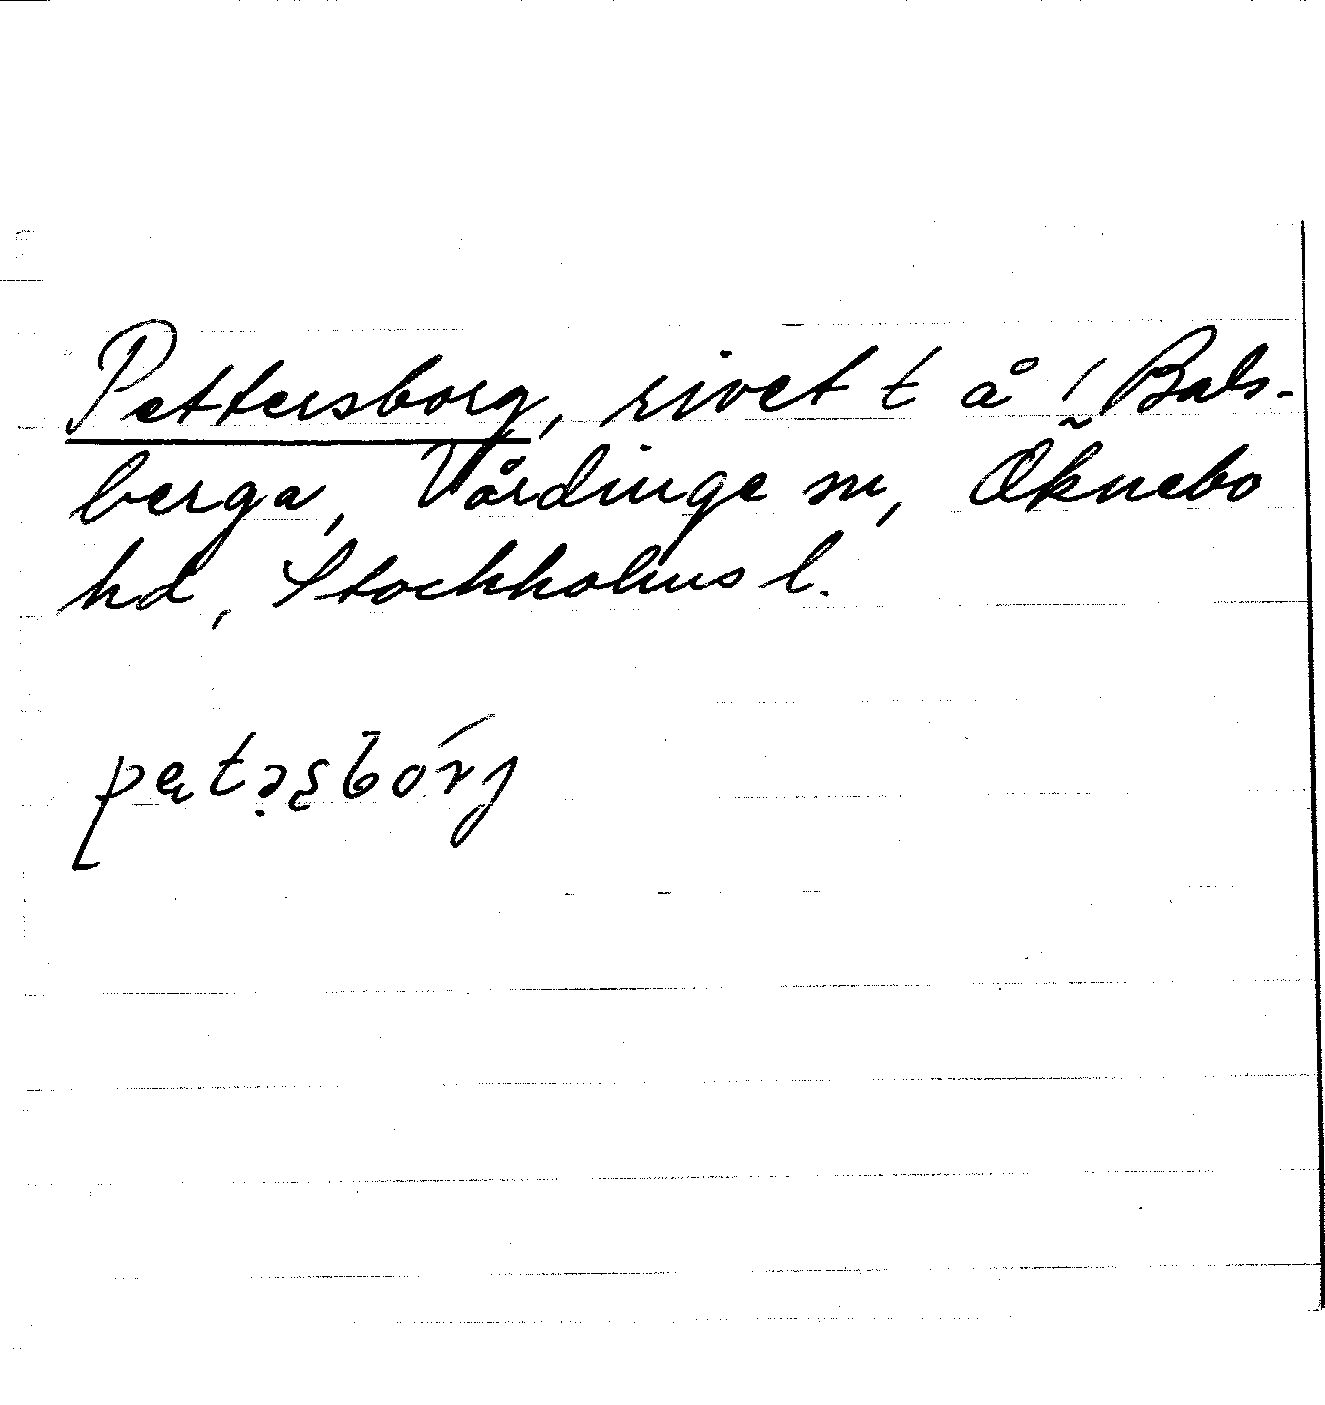 Pettersborg, rivet t å ! Bals-
berga, Vårdinge sn, Öknebo
hd, Stockholms l.